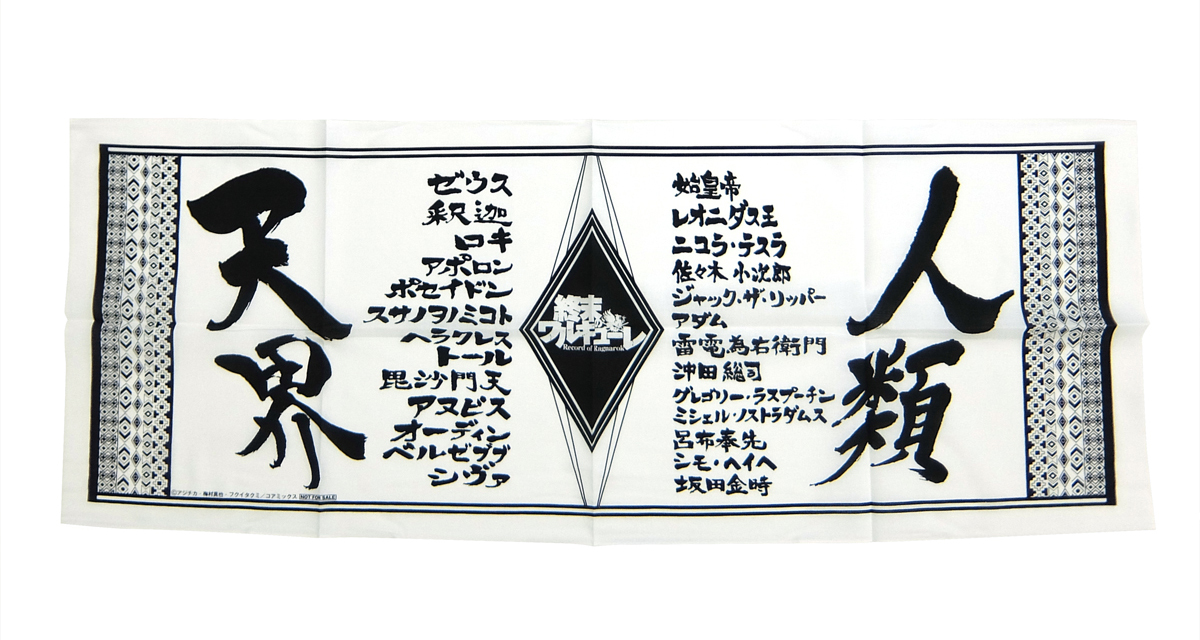 天界
ゼウス
釈迦
ロキ
アポロン
ポセイドン
スサノヲノミコト
ヘラクレス
トール
毘沙門天
アヌビス
オーディン
ベルゼブブ
シヴァ
©アジチカ・梅村真也・フクイタクミ／コアミックス NOT FOR SALE
終末のワルキューレ
Record of Ragnarok
始皇帝
レオニダス王
ニコラ・テスラ
佐々木 小次郎
ジャック・ザ・リッパー
アダム
雷電為右衛門
沖田総司
グレゴリー・ラスプーチン
ミシェル・ノストラダムス
呂布奉先
シモ・ヘイヘ
坂田金時
人類